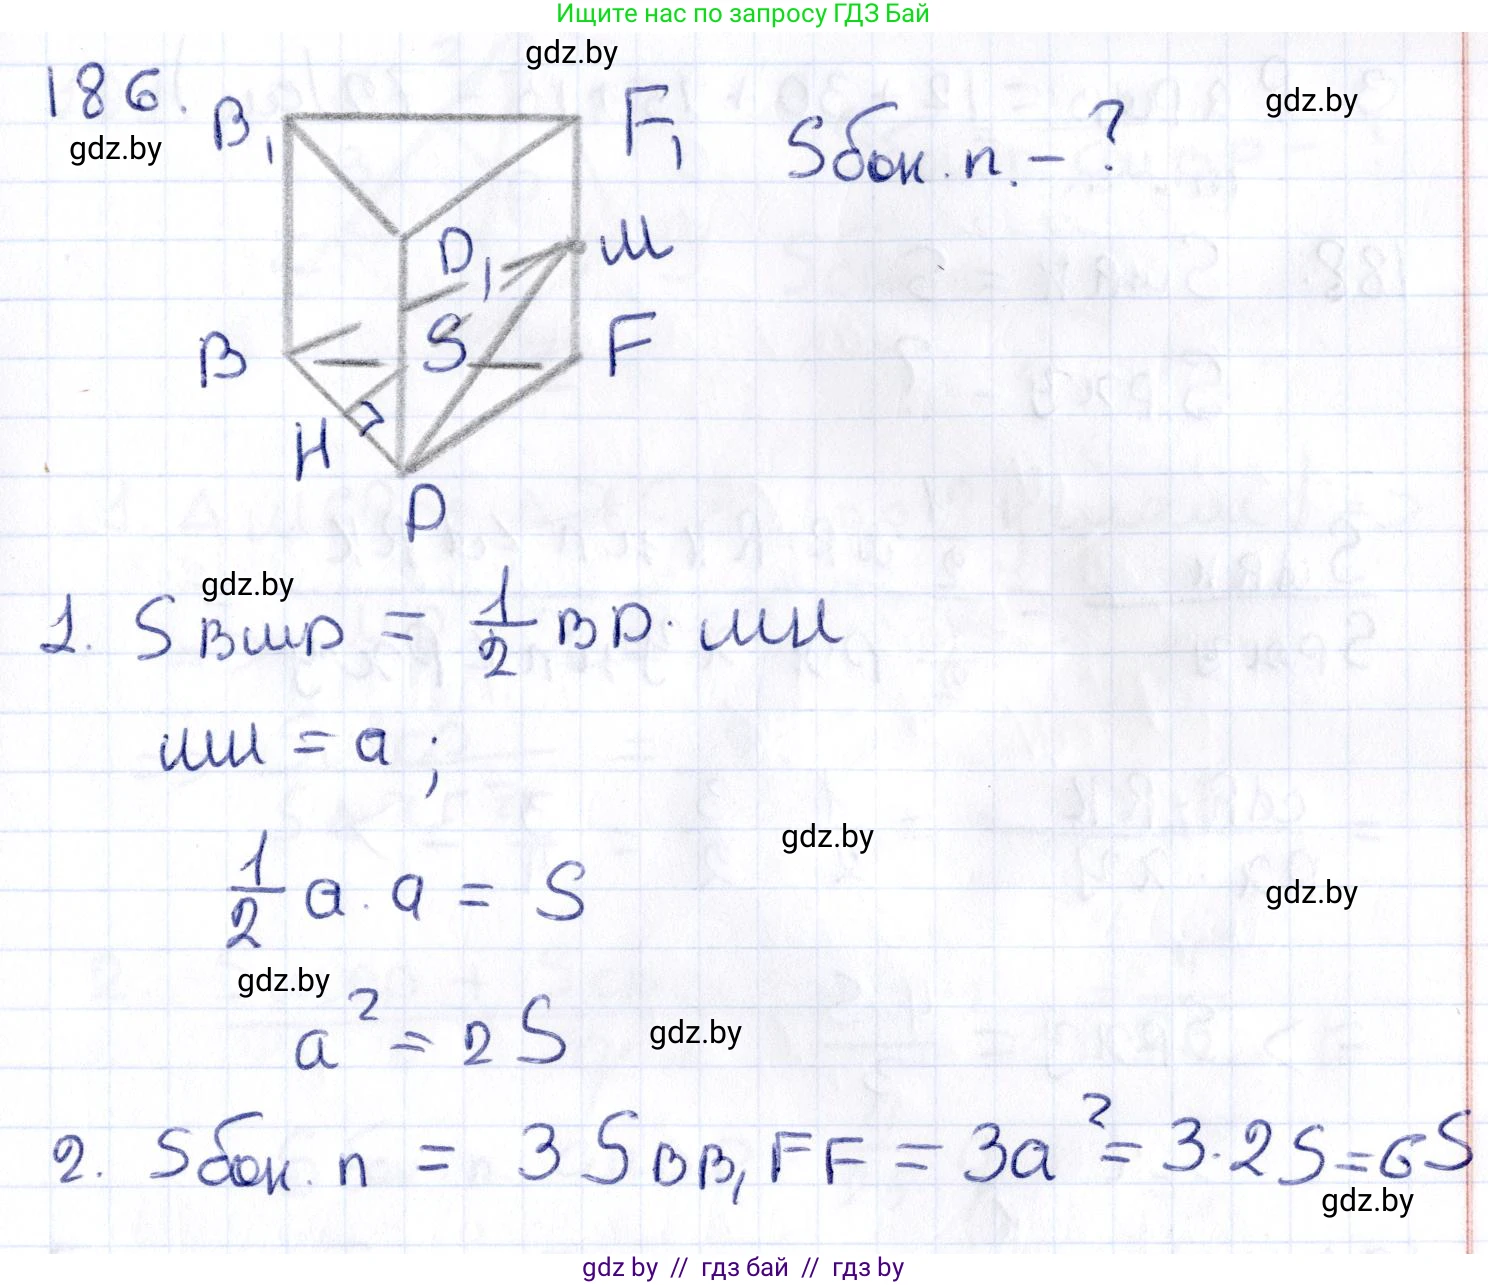 Ищите нас по запросу ГДЗ Бай
gdz.by
186.
gdz.by
gdz.by
B₁
F₁
Sбок.п. - ?
D₁
M
B
S
F
H
D
gdz.by
1. S BMD = 1/2 BD · MH
MH = a ;
gdz.by
1/2 a · a = S
gdz.by
gdz.by
a² = 2S
gdz.by
2. Sбок.п = 3 S BB₁FF = 3a² = 3·2S = 6S
gdz.by
gdz.by // гдз бай // гдз by